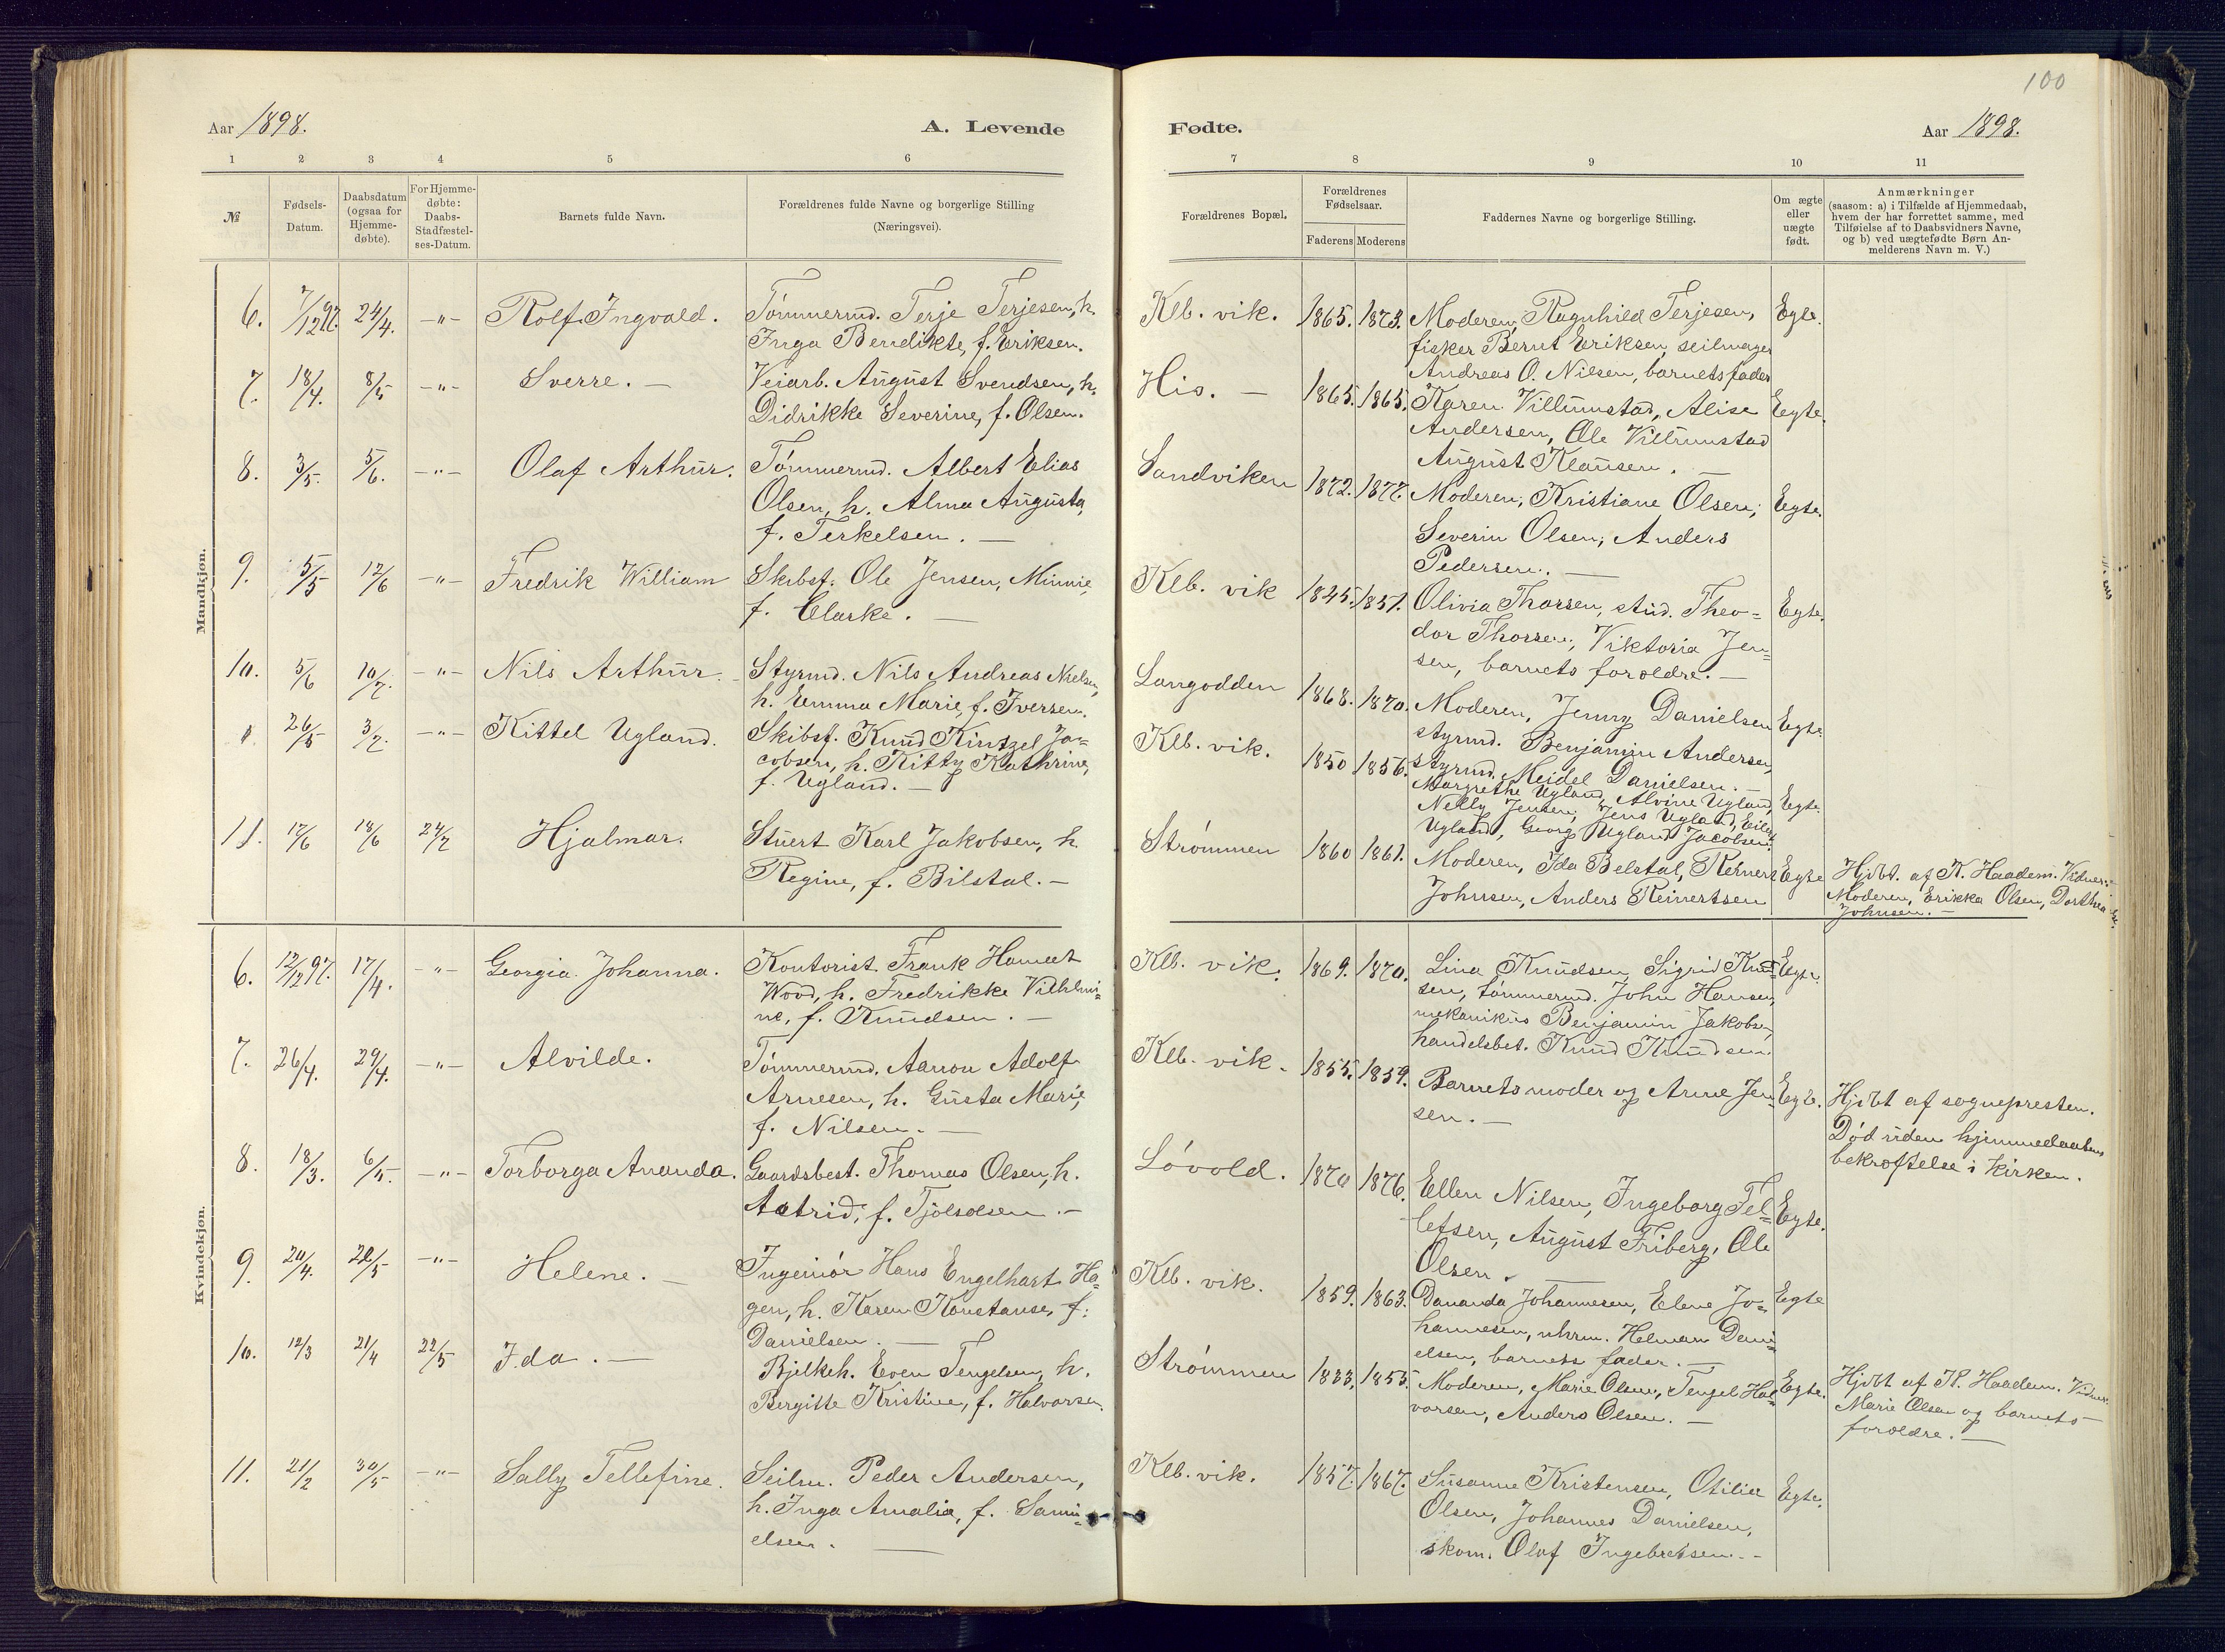 100
Aar 1898.
A. Levende
Fødte.
Aar 1898.
1 2 3 4 5 6
7 8 9 10 11
№
Fødsels-
Datum.
Daabsdatum
(ogsaa for
Hjemme-
døbte).
For Hjemme-
døbte:
Daabs-
Stadfæstel-
ses-Datum.
Barnets fulde Navn.
Forældrenes fulde Navne og borgerlige Stilling
(Næringsvei).
Forældrenes Bopæl.
Forældrenes
Fødselsaar.
Faderens Moderens
Faddernes Navne og borgerlige Stilling.
Om ægte
eller
uægte
født.
Anmærkninger
(saasom: a) i Tilfælde af Hjemmedaab,
hvem der har forrettet samme, med
Tilføielse af to Daabsvidners Navne,
og b) ved uægtefødte Børn An-
melderens Navn m. V.)
Mandkjøn.
6. 7/12 97. 24/4. -"- Rolf Ingvald. Tømmermd. Terje Terjesen, h.
Inga Bendikte, f. Eriksen.
Klb. vik. 1865. 1873. Moderen, Ragnhild Terjesen, Egte.
fisker Bernt Eriksen, seilmager
Andreas O. Nilsen, barnets fader
7. 18/4. 8/5 -"- Sverre. — Veiarb. August Svendsen, h.
Didrikke Severine, f. Olsen.
His. — 1865. 1865. Karen Villumstad, Alise Egte.
Andersen, Ole Villumstad
August Klausen. —
8. 3/5. 5/6. -"- Olaf Arthur. Tømmermd. Albert Elias
Olsen, h. Alma Augusta,
f. Terkelsen. —
Sandviken 1872. 1877. Moderen, Kristiane Olsen, Egte.
Severin Olsen, Anders
Pedersen. —
9. 5/5 12/6 -"- Fredrik William Skibsf. Ole Jensen, Minnie,
f. Clarke. —
Klb. vik 1845. 1857. Olivia Thorsen, stud. Theo= Egte.
dor Thorsen, Viktoria Jen=
sen, barnets foroldre. —
10. 5/6 10/7. -"- Nils Arthur. Styrmd. Nils Andreas Nielsen,
h. Emma Marie, f. Iversen.
Langodden 1868. 1870. Moderen, Jenny Danielsen Egte.
styrmd. Benjamin Andersen,
styrmd. Meidel Danielsen. —
26/5 3/7. -"- Kittel Ugland. Skibsf. Knud Kintzel Ja=
cobsen, h. Kitty Kathrine,
f. Ugland. —
Klb. vik. 1850 1856. Margrethe Ugland, Alvine Ugland, Egte.
Nelly Jensen, Jens Ugland, Eilert
Ugland, Georg Ugland Jacobsen.
11. 17/6 18/6 24/7 Hjalmar. Stuert Karl Jakobsen, h.
Regine, f. Bilstal. —
Strømmen 1860 1861. Moderen, Ida Belstal, Reinert Egte
Johnsen, Anders Reinertsen
Hjdbt. af K. Haadem. Vidner:
Moderen, Erikka Olsen, Dorthea
Johnsen. —
Kvindekjøn.
6. 12/12 97. 17/4. -"- Georgia Johanna. Kontorist. Frank Hamlet
Wood, h. Fredrikke Vilhlmi=
ne, f. Knudsen. —
Klb. vik. 1869. 1870. Lina Knudsen, Sigrid Knud= Egte.
sen, tømmermd. John Hansen,
mekanikus Benjamin Jakobsen,
handelsbet. Knud Knudsen.
7. 26/4. 29/4. -"- Alvilde. Tømmermd. Aanon Adolf
Arnesen, h. Gusta Marie,
f. Nilsen. —
Klb. vik. 1855. 1859. Barnets moder og Anne Jen= Egte.
sen. —
Hjdbt af sognepresten.
Død uden hjemmedaabens
bekræftelse i kirken.
8. 18/3. 6/5. -"- Torborga Ananda. Gaardsbest. Thomas Olsen, h.
Astrid, f. Tjølsolsen. —
Løvold. 1870 1876. Ellen Nilsen, Ingeborg Tel= Egte.
lefsen, August Friberg, Ole
Olsen. —
9. 20/4. 22/5 -"- Helene. — Ingeniør Hans Engelhart Ha=
gen, h. Karen Konstanse, f.
Danielsen. —
Klb. vik. 1859. 1863. Dananda Johannesen, Elene Jo= Egte
hannesen, uhrm. Helman Dani=
elsen, barnets fader. —
10. 12/3 21/4 22/5 Ida. — Bjelkeh. Even Tengelsen, h.
Bergitte Kristine, f. Halvorsen.
Strømmen 1833. 1855. Moderen, Marie Olsen, Tengel Hal= Egte.
vorsen, Anders Olsen. —
Hjdbt af K. Haadem. Vidner:
Marie Olsen og barnets
foroldre. —
11. 21/2 30/5 -"- Sally Tellefine. Seilm. Peder Andersen,
h. Inga Amalia, f. Samu=
elsen. —
Klb. vik. 1857. 1867. Susanne Kristensen, Otilia Egte.
Olsen, Johannes Danielsen,
skom. Olaf Ingebretsen. —